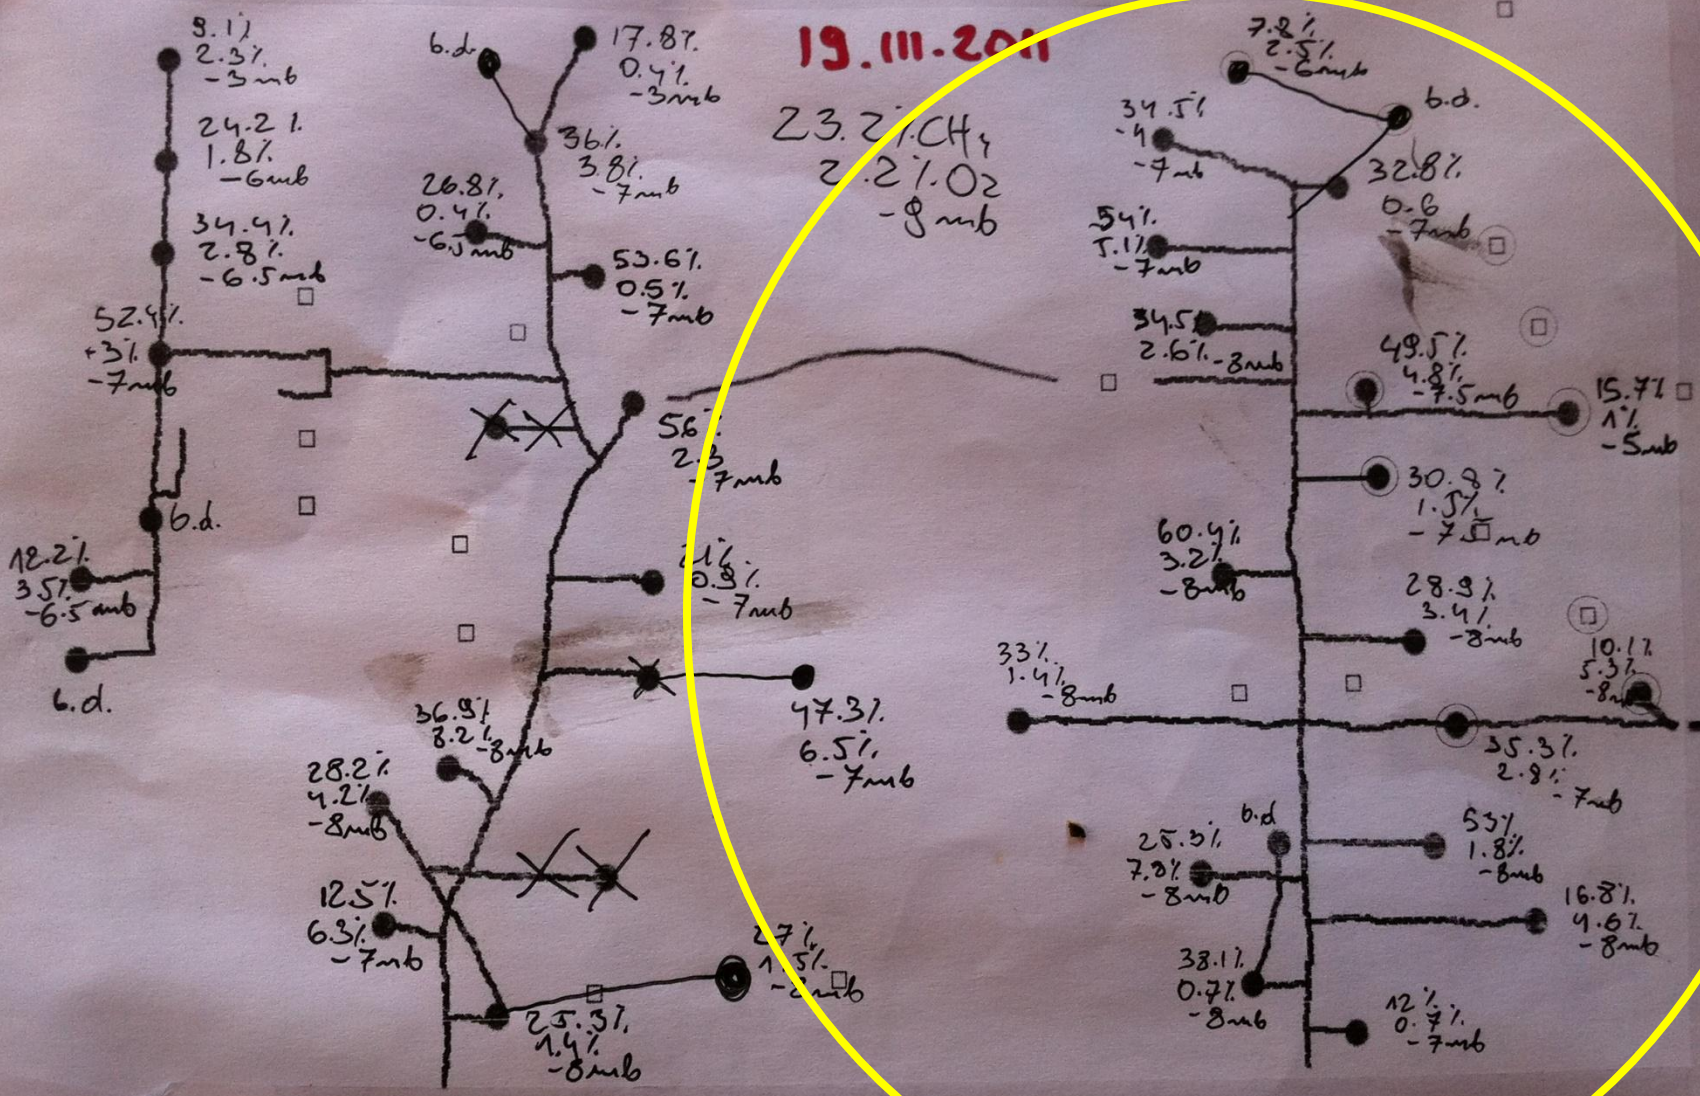 9.1%
2.3%
-3mb
24.2%
1.8%
-6mb
34.4%
2.8%
-6.5mb
52.4%
+3%
-7mb
b.d.
12.2%
3.5%
-6.5mb
b.d.
b.d.
17.8%
0.4%
-3mb
36%
3.8%
-7mb
26.8%
0.4%
-6.5mb
53.6%
0.5%
-7mb
56%
2.3
-7mb
21%
0.9%
-7mb
47.3%
6.5%
-7mb
36.9%
8.2% -8mb
28.2%
4.2%
-8mb
12.5%
6.3%
-7mb
27%
1.5%
-8mb
25.3%
1.4%
-8mb
19.III.2011
23.2% CH4
2.2% O2
-9mb
7.8%
2.5%
-6mb
b.d.
34.5%
-4
-7mb
32.8%
0.6
-7mb
54%
5.1%
-7mb
34.5
2.6% -8mb
49.5%
4.8%
-7.5mb
15.7%
1%
-5mb
30.8%
1.5%
-7.5mb
60.4%
3.2%
-8mb
28.9%
3.4%
-8mb
33%
1.4%
-8mb
10.1%
5.3%
-8mb
35.3%
2.8%
-7mb
b.d
25.3%
7.9%
-8mb
53%
1.8%
-8mb
16.8%
4.6%
-8mb
38.1%
0.7%
-8mb
12%
0.7%
-7mb